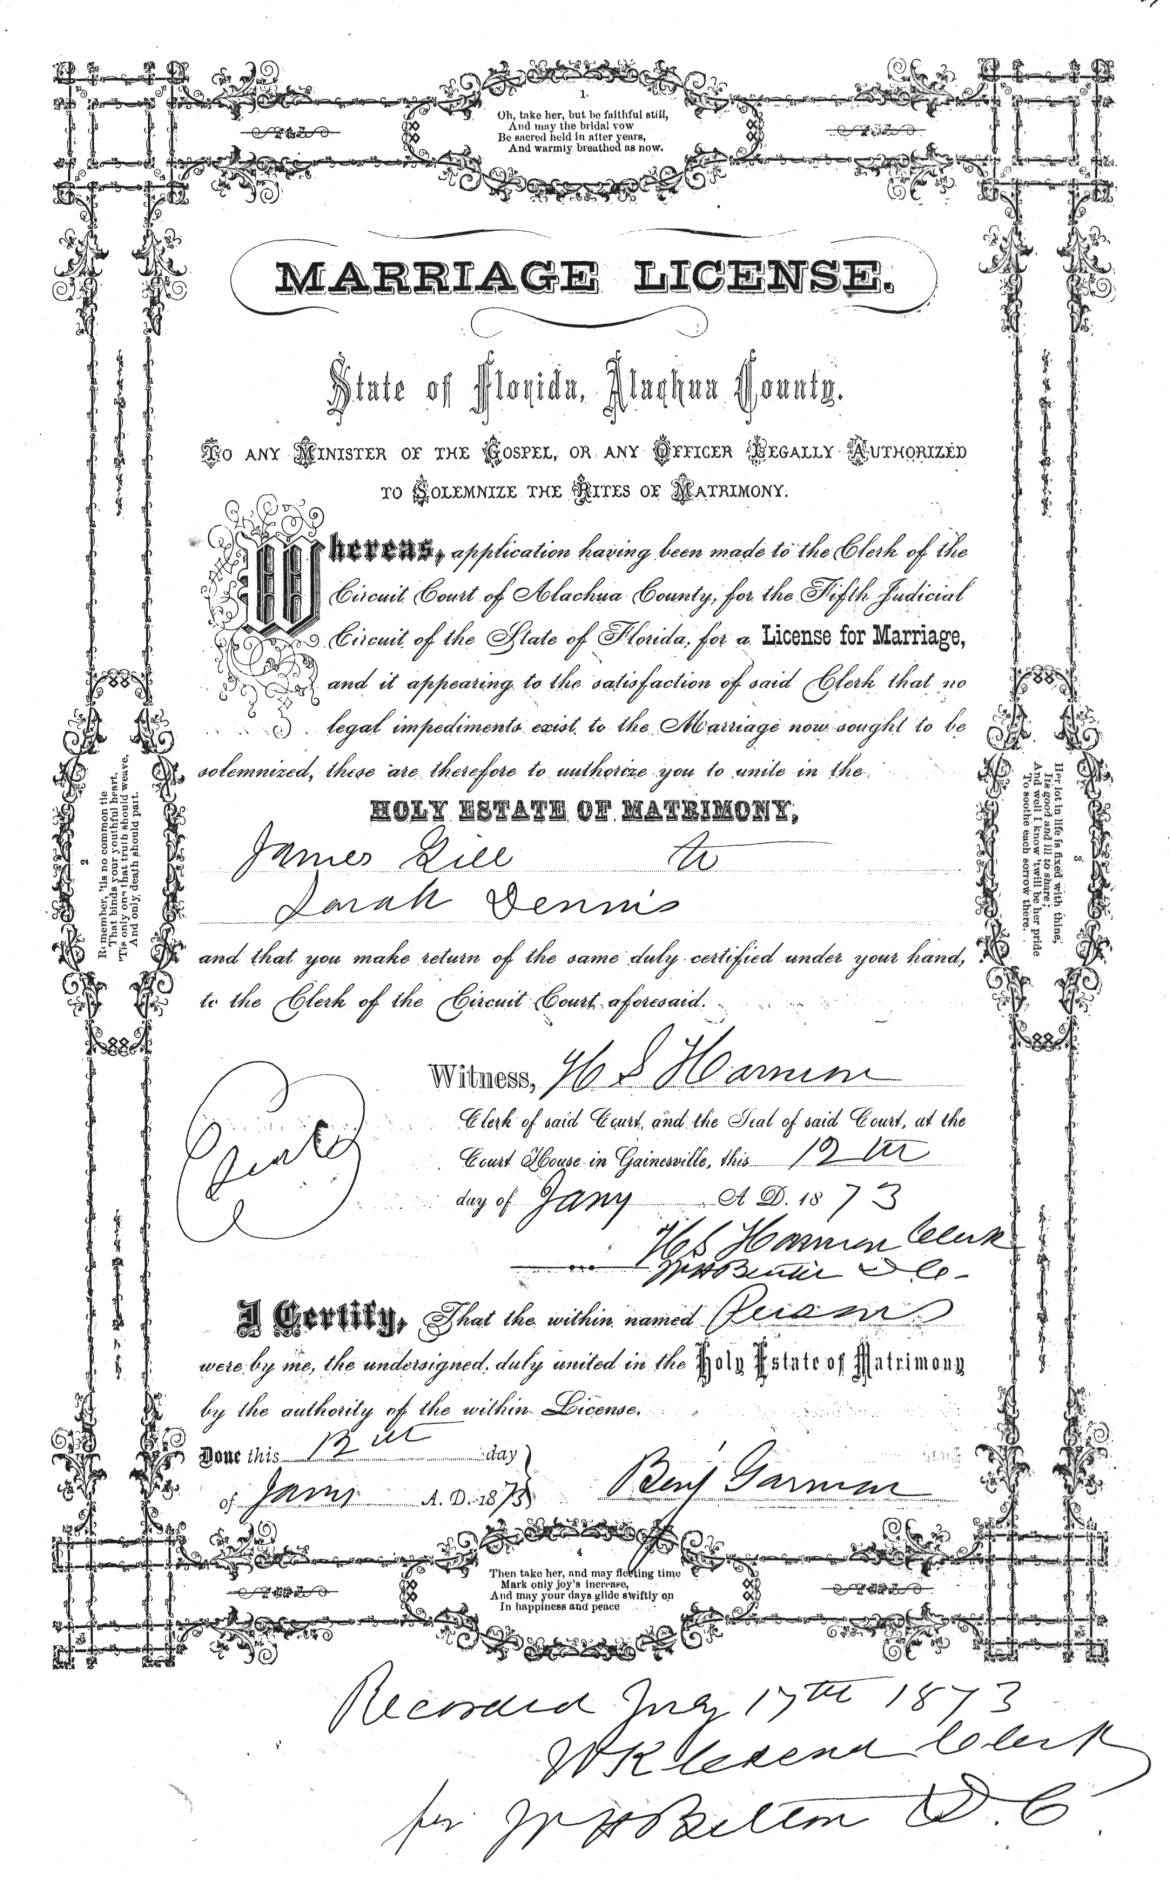 1.
Oh, take her, but be faithful still,
And may the bridal vow
Be sacred held in after years,
And warmly breathed as now.
MARRIAGE LICENSE.
State of Florida, Alachua County.
TO ANY MINISTER OF THE GOSPEL, OR ANY OFFICER LEGALLY AUTHORIZED
TO SOLEMNIZE THE RITES OF MATRIMONY.
Whereas, application having been made to the Clerk of the
Circuit Court of Alachua County, for the Fifth Judicial
Circuit of the State of Florida, for a License for Marriage,
and it appearing to the satisfaction of said Clerk that no
legal impediments exist to the Marriage now sought to be
solemnized, these are therefore to authorize you to unite in the
HOLY ESTATE OF MATRIMONY,
James Gill to
Sarah Dennis
and that you make return of the same duly certified under your hand,
to the Clerk of the Circuit Court aforesaid.
2
Remember, 'tis no common tie
That binds your youthful heart,
'Tis only one that truth should weave,
And only death should part.
3
Her lot in life is fixed with thine,
Its good and ill to share;
And well I know 'twill be her pride
To soothe each sorrow there.
Witness, H S Harmon
Clerk of said Court, and the Seal of said Court, at the
Court House in Gainesville, this 12th
day of Jany A D. 1873
H S Harmon Clerk
D C
I Certify, That the within named Persons
were by me, the undersigned, duly united in the Holy Estate of Matrimony
by the authority of the within License.
Done this 12th day
of Jany A. D. 1873
Benj Garman
4
Then take her, and may fleeting time
Mark only joy's increase,
And may your days glide swiftly on
In happiness and peace
Recorded July 17th 1873
Clerk
per W H Belton D. C.